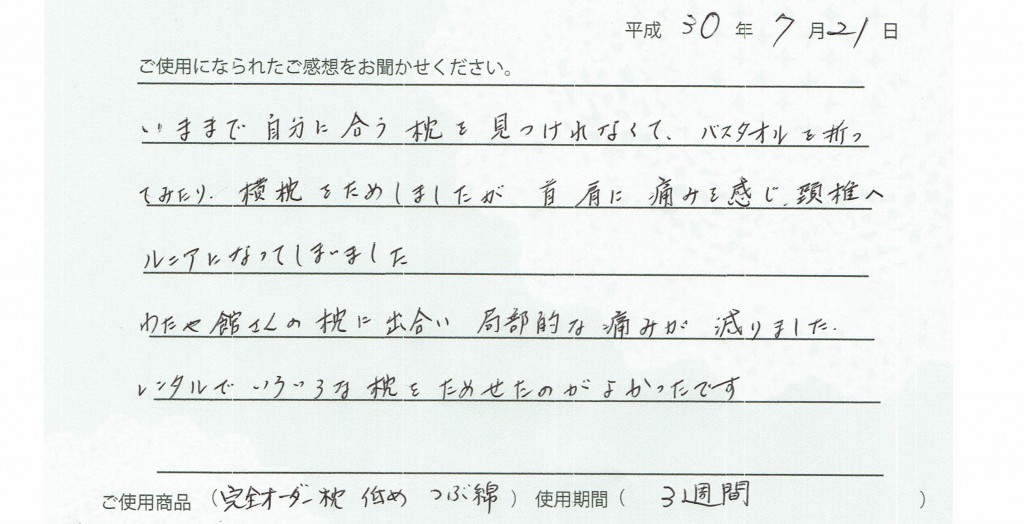 平成 30 年 7 月 21 日
ご使用になられたご感想をお聞かせください。
いままで 自分に 合う 枕を 見つけれなくて、バスタオルを折っ
てみたり、横枕をためしましたが 首 肩に 痛みを感じ、頸椎ヘ
ルニアになってしまいました
わたや館さんの枕に出合い 局部的な痛みが 減りました。
レンタルで いろいろな枕を ためせたのがよかったです
ご使用商品 (完全オーダー枕 低め つぶ綿) 使用期間 ( 3週間 )